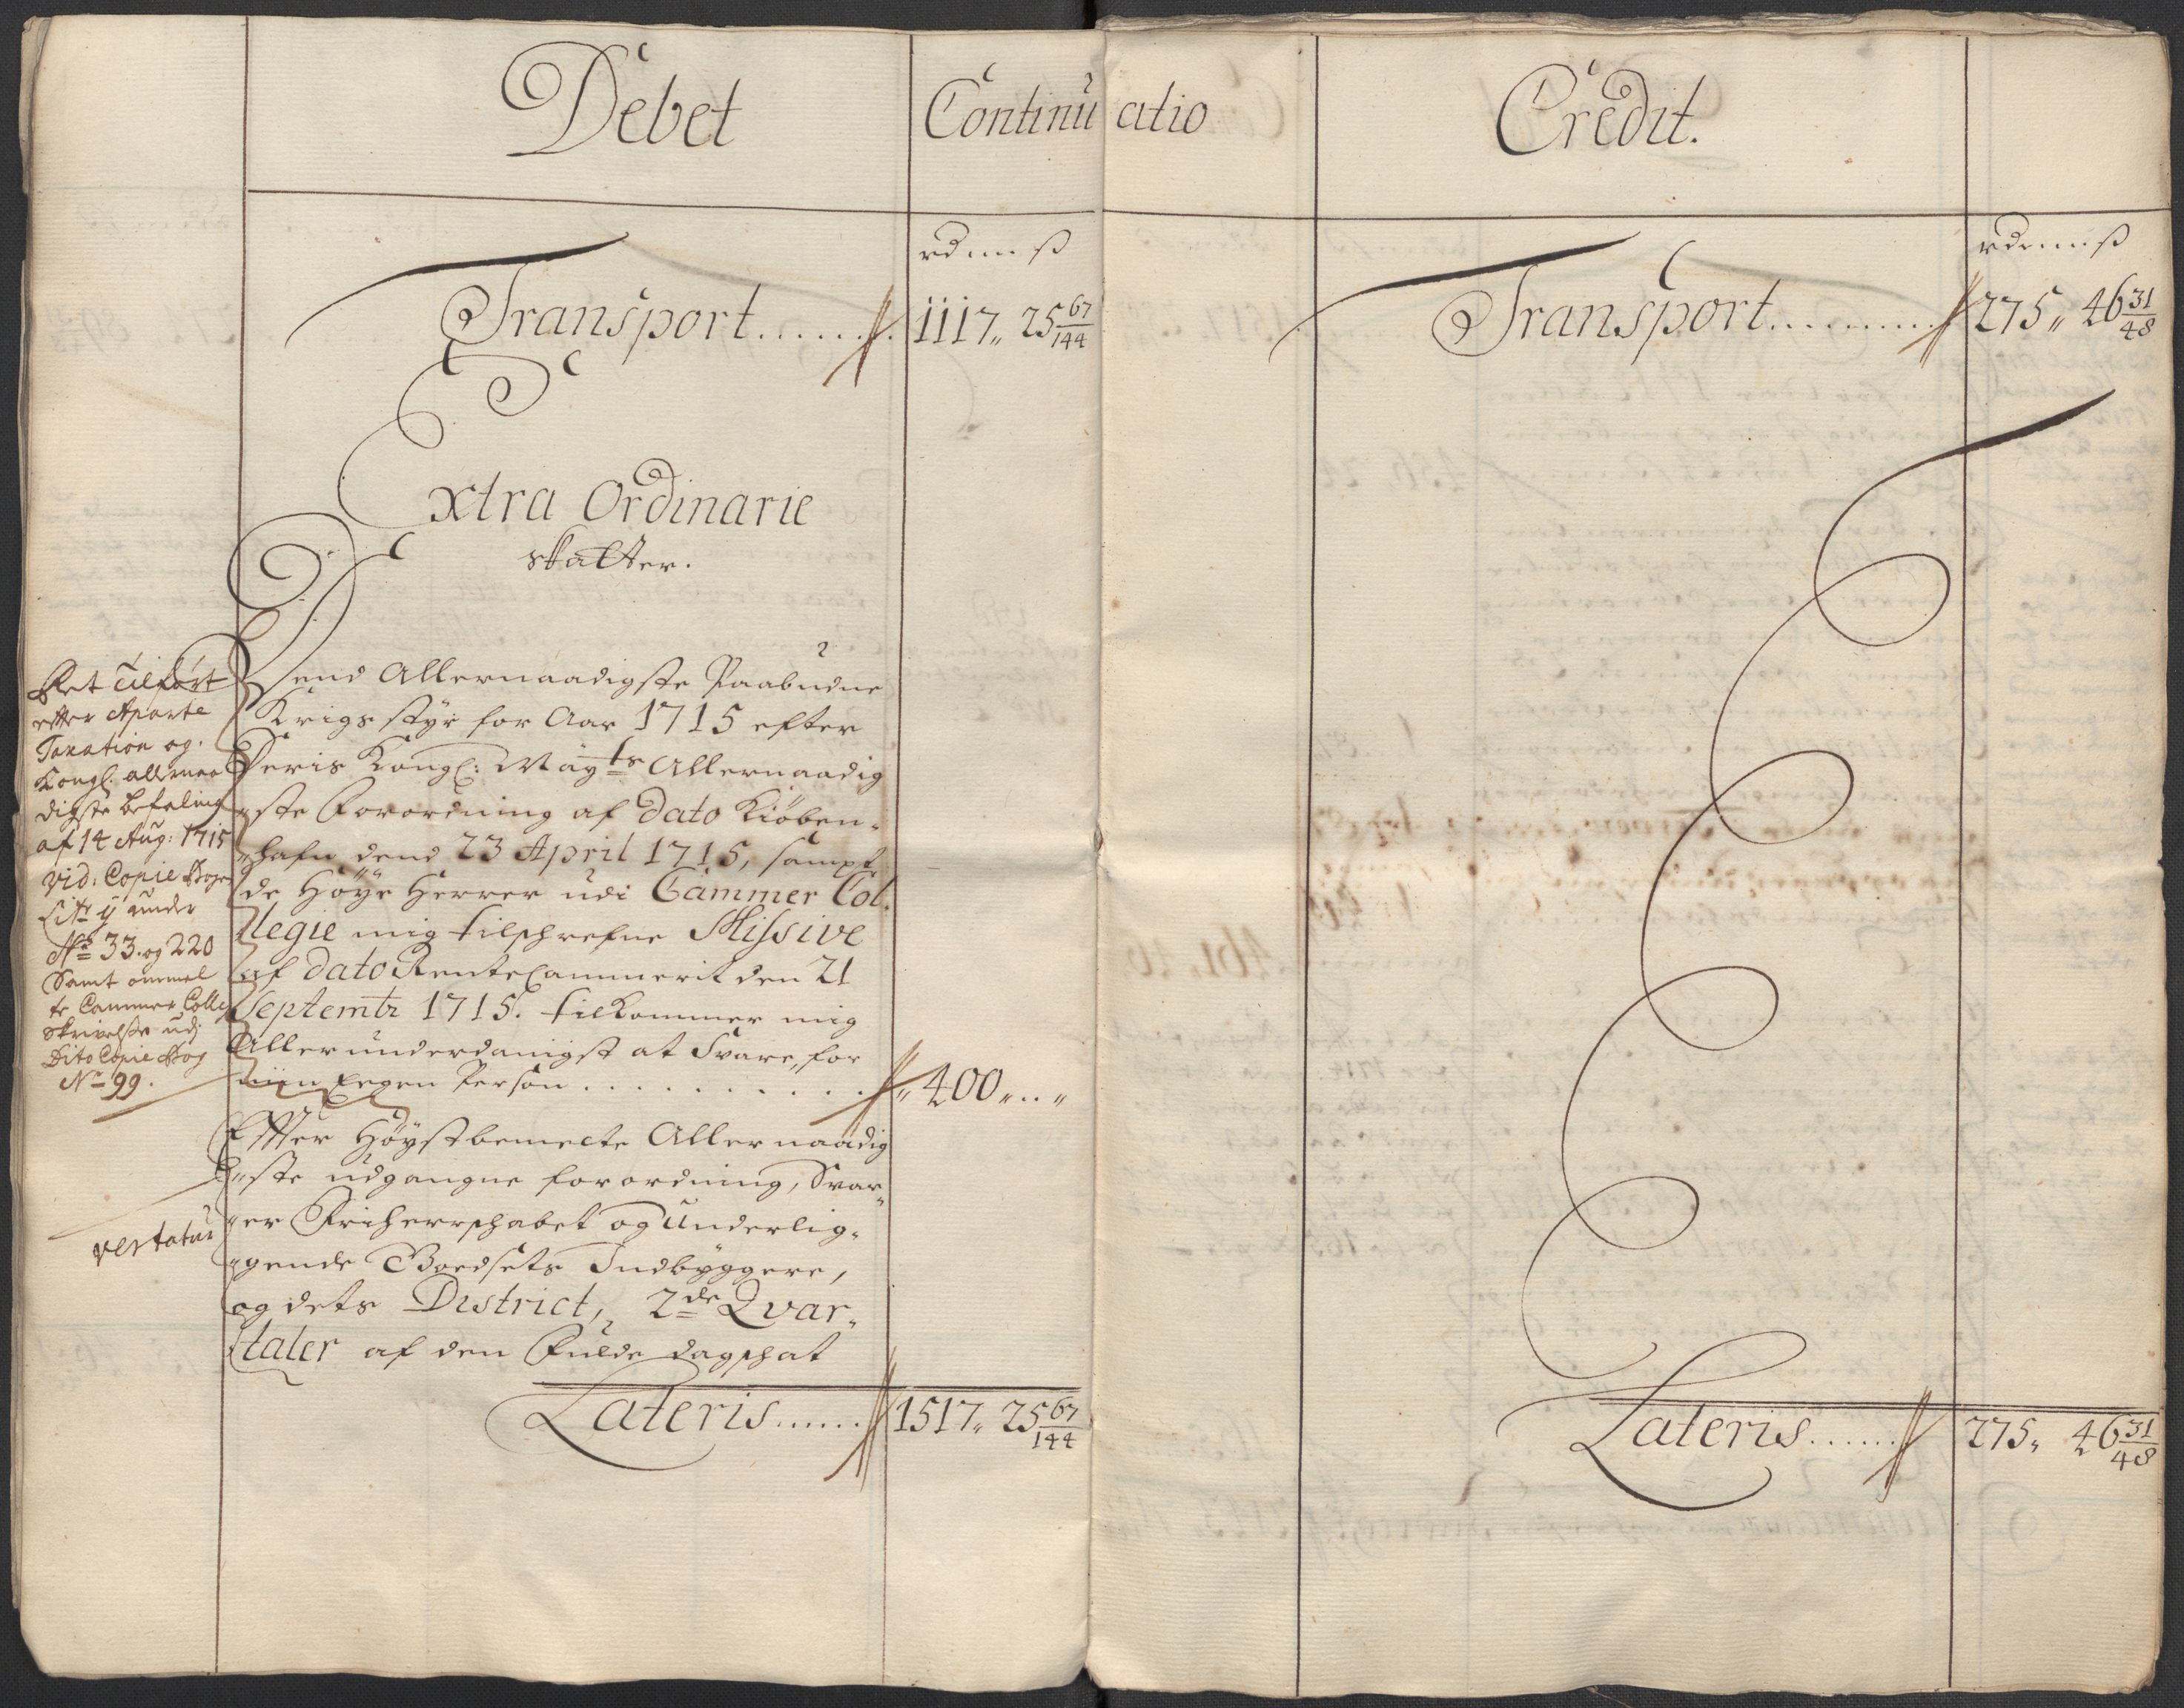 Debet
Continuatio
Credit.
rd ß
Transport....... 1117„ 25 67/144
Extra Ordinarie
skatter.
Dend Allernaadigste Paabudne
Krigs styr for Aar 1715 efter
Deris Kongl: Mayts Allernaadig
„ste Forordning af Dato Kiøben„
„hafn dend 23 April 1715, sampt
de Høye Herrer udi Cammer Col„
legie mig tilschrefne Missive
af Dato RenteCammerit den 21
Septembr 1715. tilkommer mig
Allerunderdanigst at Svare, for
min Eegen Person . . . . . . . . „ 400„..„
Efter Høystbemelte Allernaadig
„ste udgangne forordning, Svar„
„er Friherrschabet og Underlig„
„gende Goedsets Indbyggere,
og dets District, 2de Qvar„
taler af den Fulde dagschat
Lateris...... 1517„ 25 67/144
Ret tilført
efter Aparte
Taxation og
Kongl. allernaa
digste befaling
af 14 Aug: 1715
vid: Copie Bogen
Litr y under
No 33. og 220
Samt ommel
te Cammer Colleg
Skrivelse udj
Dito Copie Bog
No 99.
vertatur
rd ß
Transport......... 275„ 46 31/48
Lateris...... 275„ 46 31/48